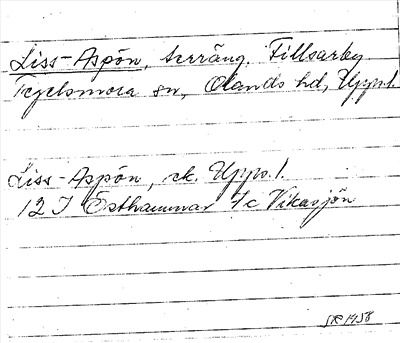 Liss-Aspön, terräng. Tillsarby
Tegelsmora sn, Olands hd, Upps. l.
Liss-Aspön, ek. Upps. l.
12 I Östhammar 7c Vikasjön
1958